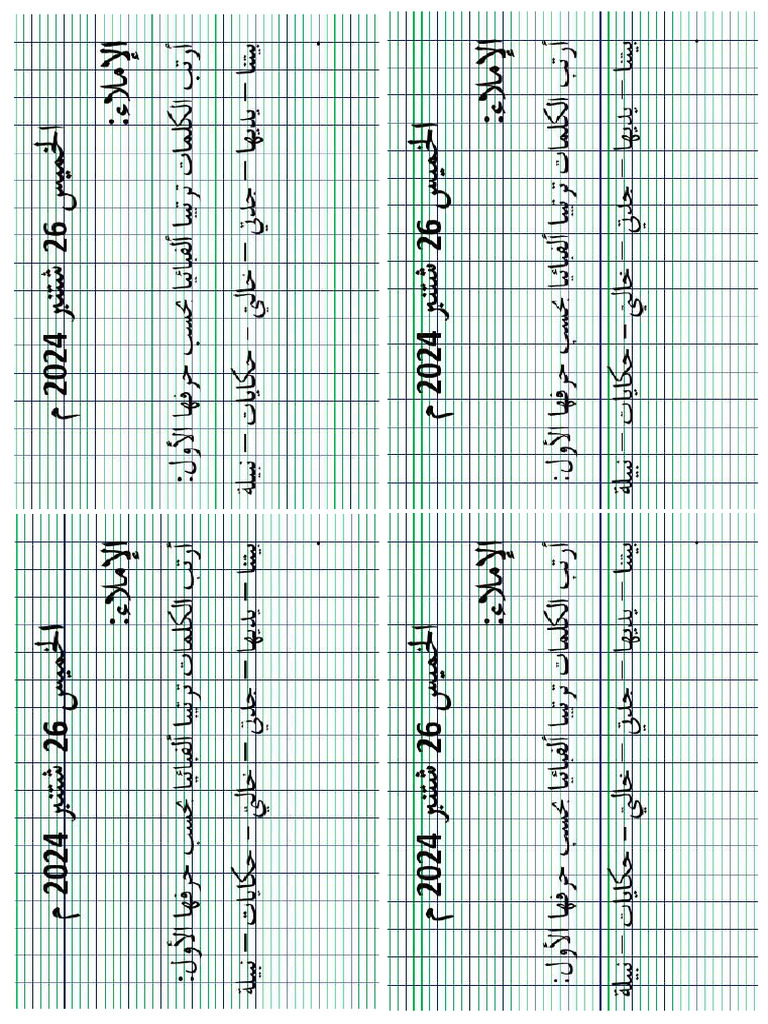 الخميس 26 شتنبر 2024 م
الإملاء:
أرتب الكلمات ترتيبا ألفبائيا بحسب حرفها الأول:
بيتنا – يديها – جدتي – خالتي – حكايات – نبيلة
الخميس 26 شتنبر 2024 م
الإملاء:
أرتب الكلمات ترتيبا ألفبائيا بحسب حرفها الأول:
بيتنا – يديها – جدتي – خالتي – حكايات – نبيلة
الخميس 26 شتنبر 2024 م
الإملاء:
أرتب الكلمات ترتيبا ألفبائيا بحسب حرفها الأول:
بيتنا – يديها – جدتي – خالتي – حكايات – نبيلة
الخميس 26 شتنبر 2024 م
الإملاء:
أرتب الكلمات ترتيبا ألفبائيا بحسب حرفها الأول:
بيتنا – يديها – جدتي – خالتي – حكايات – نبيلة